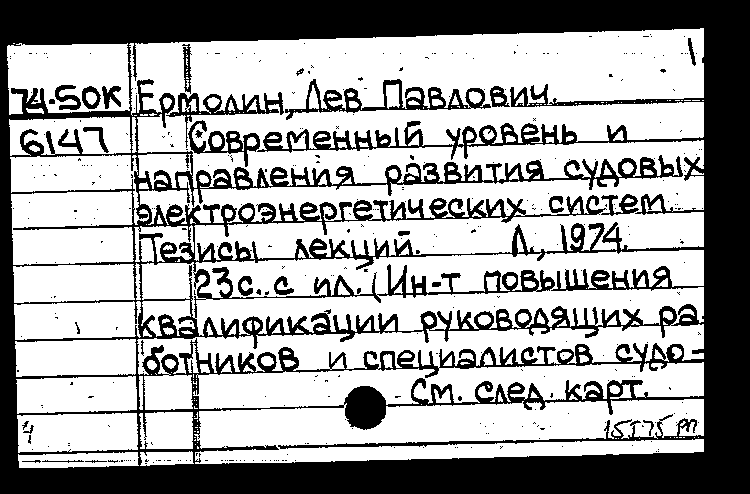 1.
74-50К Ермолин, Лев Павлович.
6147 Современный уровень и
направления развития судовых
электроэнергетических систем.
Тезисы лекций. Л., 1974.
23с. с ил. (Ин-т повышения
квалификации руководящих ра-
ботников и специалистов судо-
См. след. карт.
4 15I75